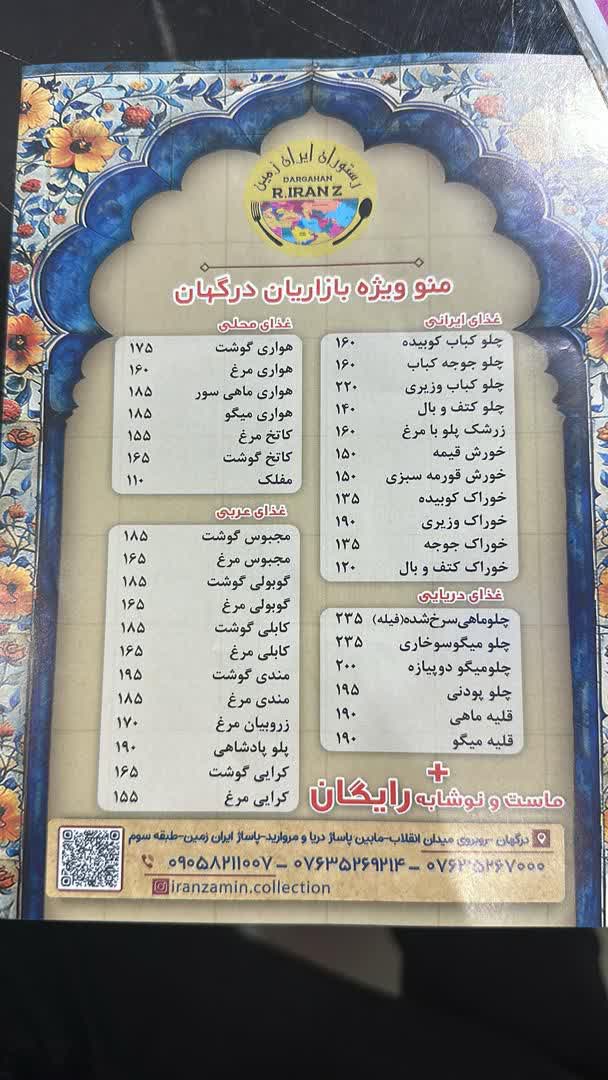 رستوران ایران زمین
DARGAHAN
R.IRAN Z
منو ویژه بازاریان درگهان
غذای ایرانی
چلو کباب کوبیده ۱۶۰
چلو جوجه کباب ۱۶۰
چلو کباب وزیری ۲۲۰
چلو کتف و بال ۱۴۰
زرشک پلو با مرغ ۱۶۰
خورش قیمه ۱۵۰
خورش قورمه سبزی ۱۵۰
خوراک کوبیده ۱۳۵
خوراک وزیری ۱۹۰
خوراک جوجه ۱۳۵
خوراک کتف و بال ۱۲۰
غذای دریایی
چلوماهی‌سرخ‌شده(فیله) ۲۳۵
چلو میگوسوخاری ۲۳۵
چلومیگو دوپیازه ۲۰۰
چلو پودنی ۱۹۵
قلیه ماهی ۱۹۰
قلیه میگو ۱۹۰
غذای محلی
هواری گوشت ۱۷۵
هواری مرغ ۱۶۰
هواری ماهی سور ۱۸۵
هواری میگو ۱۸۵
کاتخ مرغ ۱۵۵
کاتخ گوشت ۱۶۵
مفلک ۱۱۰
غذای عربی
مجبوس گوشت ۱۸۵
مجبوس مرغ ۱۶۵
گوبولی گوشت ۱۸۵
گوبولی مرغ ۱۶۵
کابلی گوشت ۱۸۵
کابلی مرغ ۱۶۵
مندی گوشت ۱۹۵
مندی مرغ ۱۸۵
زروبیان مرغ ۱۷۰
پلو پادشاهی ۱۹۰
کرایی گوشت ۱۶۵
کرایی مرغ ۱۵۵
+
ماست و نوشابه رایگان
درگهان -روبروی میدان انقلاب-مابین پاساژ دریا و مروارید-پاساژ ایران زمین-طبقه سوم
۰۷۶۳۵۲۶۷۰۰۰ – ۰۷۶۳۵۲۶۹۲۱۴ – ۰۹۰۵۸۲۱۱۰۰۷
iranzamin.collection